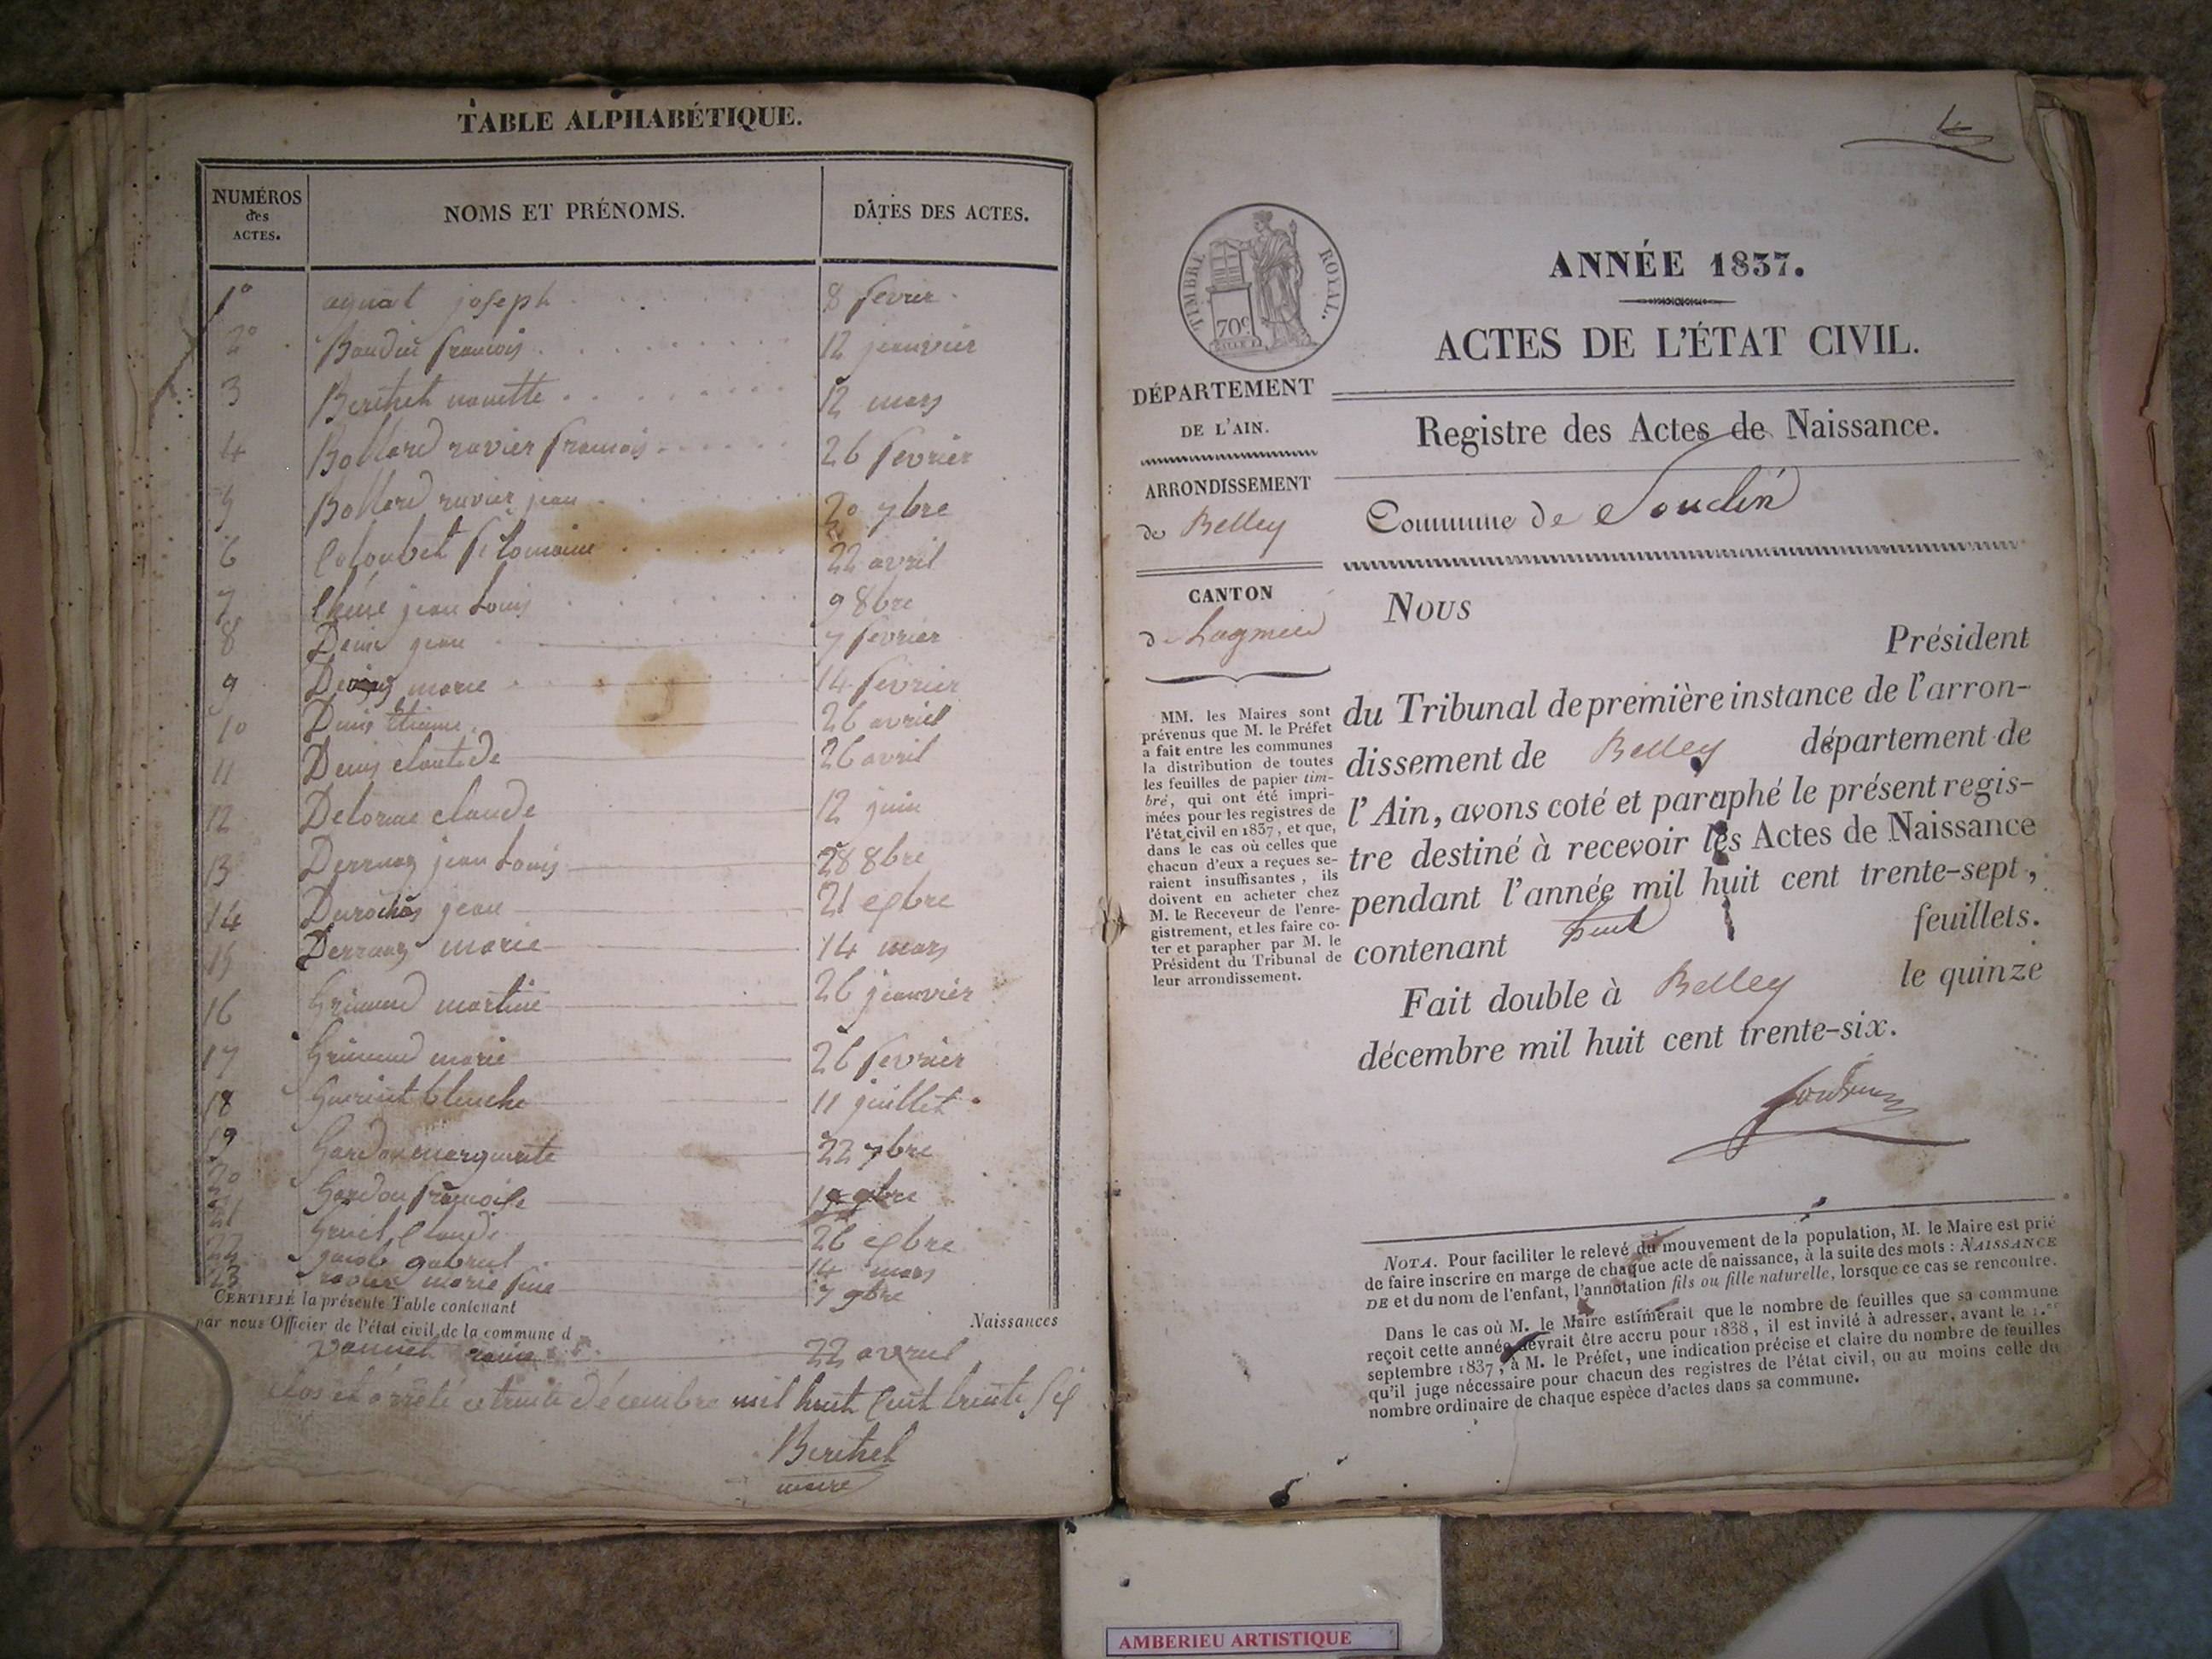 TABLE ALPHABÉTIQUE.
NUMÉROS des ACTES.
NOMS ET PRÉNOMS.
DATES DES ACTES.
1° aguat joseph 8 fevrier
2° Baudin francois 12 janvier
3 Berthet nanette 12 mars
4 Bollard ravier francois 26 fevrier
5 Bollard ravier jean 20 7bre
6 Coloubet 22 avril
7 jean Louis 9 8bre
8 Denis jean 7 fevrier
9 marie 14 fevrier
10 Denis Etienne 26 avril
11 Denis clautide 26 avril
12 Delorme claude 12 juin
13 jean Louis 28 8bre
14 Durochas jean 21
15 marie 14 mars
16 Grimand martine 26 janvier
17 Grimand marie 26 fevrier
18 Guerinet blanche 11 juillet
19 Gardon marguerite 22 7bre
20 Gardon francoise
21 Gruet Claude 26
22 jacob gabriel 14 mars
23 ravier marie 7 9bre
CERTIFIÉ la présente Table contenant
Naissances
par nous Officier de l'état civil de la commune d
Vannet 22 avril
clos et arrêté ce trente décembre mil huit Cent trente Six
Berthet
maire
ANNÉE 1837.
ACTES DE L'ÉTAT CIVIL.
TIMBRE ROYAL.
70c
DÉPARTEMENT
DE L'AIN.
ARRONDISSEMENT
de Belley
CANTON
de Lagnieu
Registre des Actes de Naissance.
Commune de Souclin
MM. les Maires sont
prévenus que M. le Préfet
a fait entre les communes
la distribution de toutes
les feuilles de papier tim-
bré, qui ont été impri-
mées pour les registres de
l'état civil en 1837, et que,
dans le cas où celles que
chacun d'eux a reçues se-
raient insuffisantes, ils
doivent en acheter chez
M. le Receveur de l'enre-
gistrement, et les faire co-
ter et parapher par M. le
Président du Tribunal de
leur arrondissement.
Nous
Président
du Tribunal de première instance de l'arron-
dissement de Belley département de
l'Ain, avons coté et paraphé le présent regis-
tre destiné à recevoir les Actes de Naissance
pendant l'année mil huit cent trente-sept,
contenant huit feuillets.
Fait double à Belley le quinze
décembre mil huit cent trente-six.
NOTA. Pour faciliter le relevé du mouvement de la population, M. le Maire est prié
de faire inscrire en marge de chaque acte de naissance, à la suite des mots : NAISSANCE
DE et du nom de l'enfant, l'annotation fils ou fille naturelle, lorsque ce cas se rencontre.
Dans le cas où M. le Maire estimerait que le nombre de feuilles que sa commune
reçoit cette année devrait être accru pour 1838, il est invité à adresser, avant le 1.er
septembre 1837, à M. le Préfet, une indication précise et claire du nombre de feuilles
qu'il juge nécessaire pour chacun des registres de l'état civil, ou au moins celle du
nombre ordinaire de chaque espèce d'actes dans sa commune.
AMBERIEU ARTISTIQUE